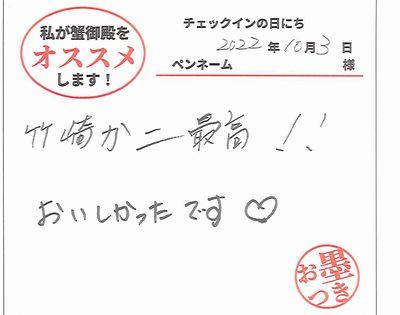 私が蟹御殿を
オススメ
します！
チェックインの日にち
2022年10月3日
ペンネーム 様
竹崎カニ最高!!
おいしかったです♡
お墨つき